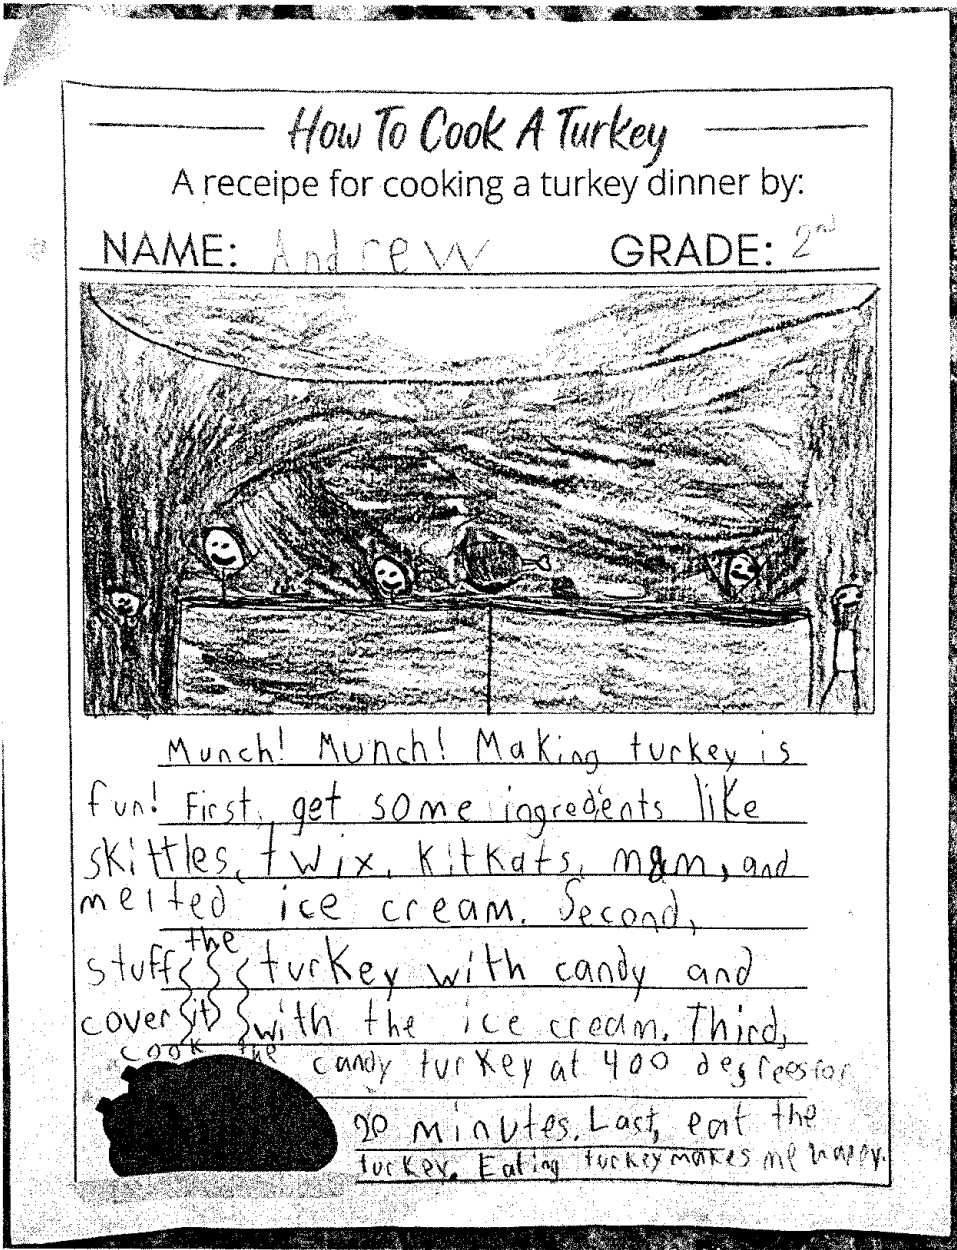 How To Cook A Turkey
A receipe for cooking a turkey dinner by:
NAME: Andrew GRADE: 2nd
Munch! Munch! Making turkey is
fun! First, get some ingredents like
skittles, twix, KitKats, m&m, and
melted ice cream. Second,
stuff the turkey with candy and
cover it with the ice cream. Third,
cook the candy turkey at 400 degrees for
20 minutes. Last, eat the
turkey. Eating turkey makes me happy.